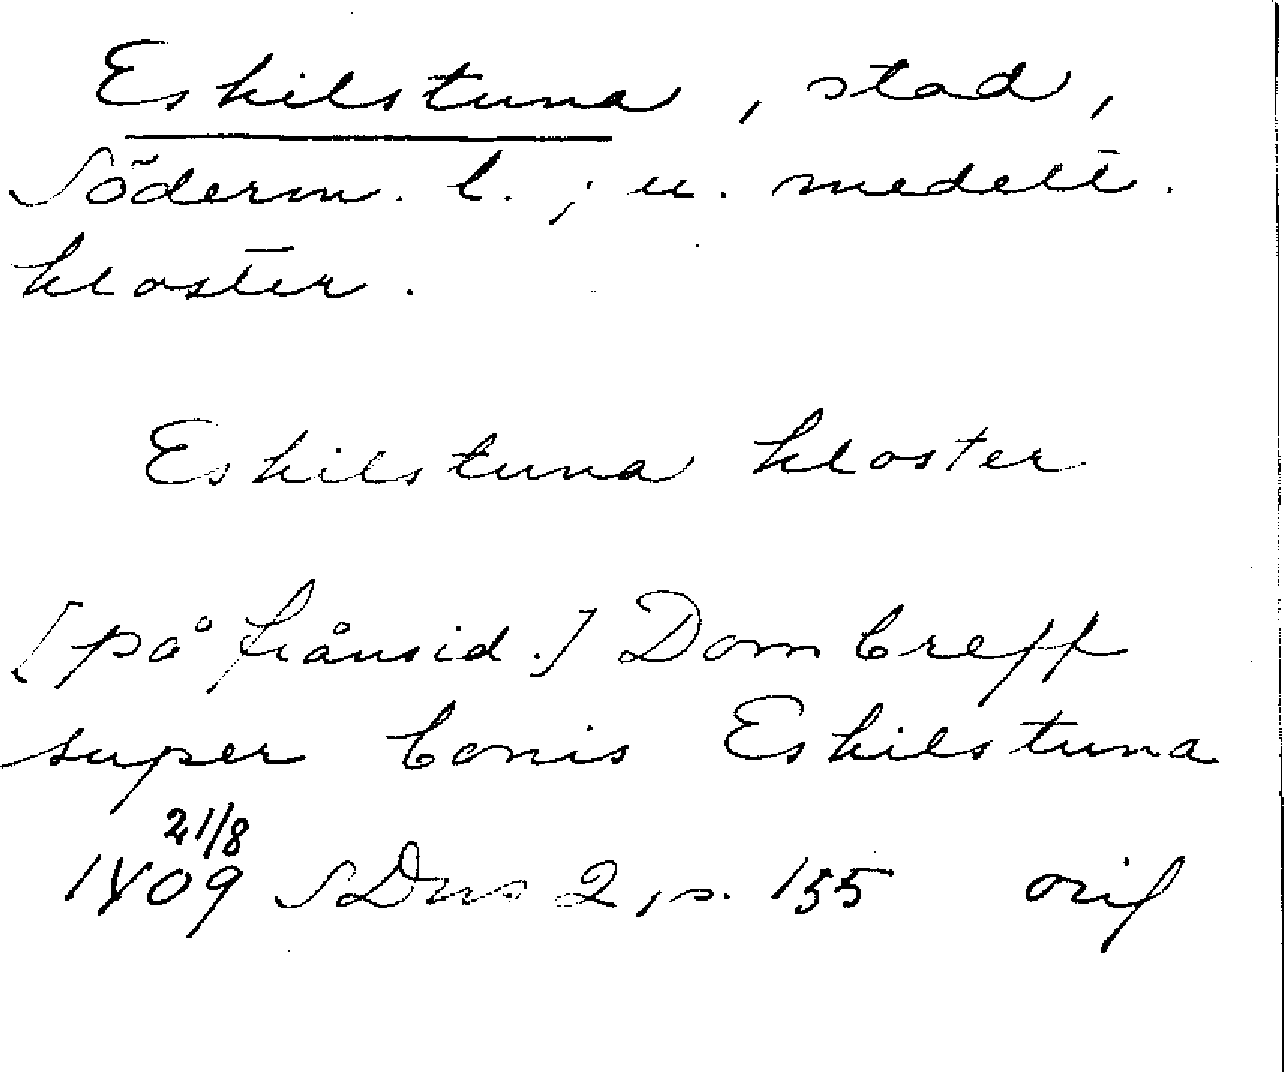 Eskilstuna, stad,
Söderm. l.; u. medelt.
kloster.
Eskilstuna kloster
[på frånsid.] Dom breff
super bonis Eskilstuna
21/8
1409 SDns 2, s. 155 orig